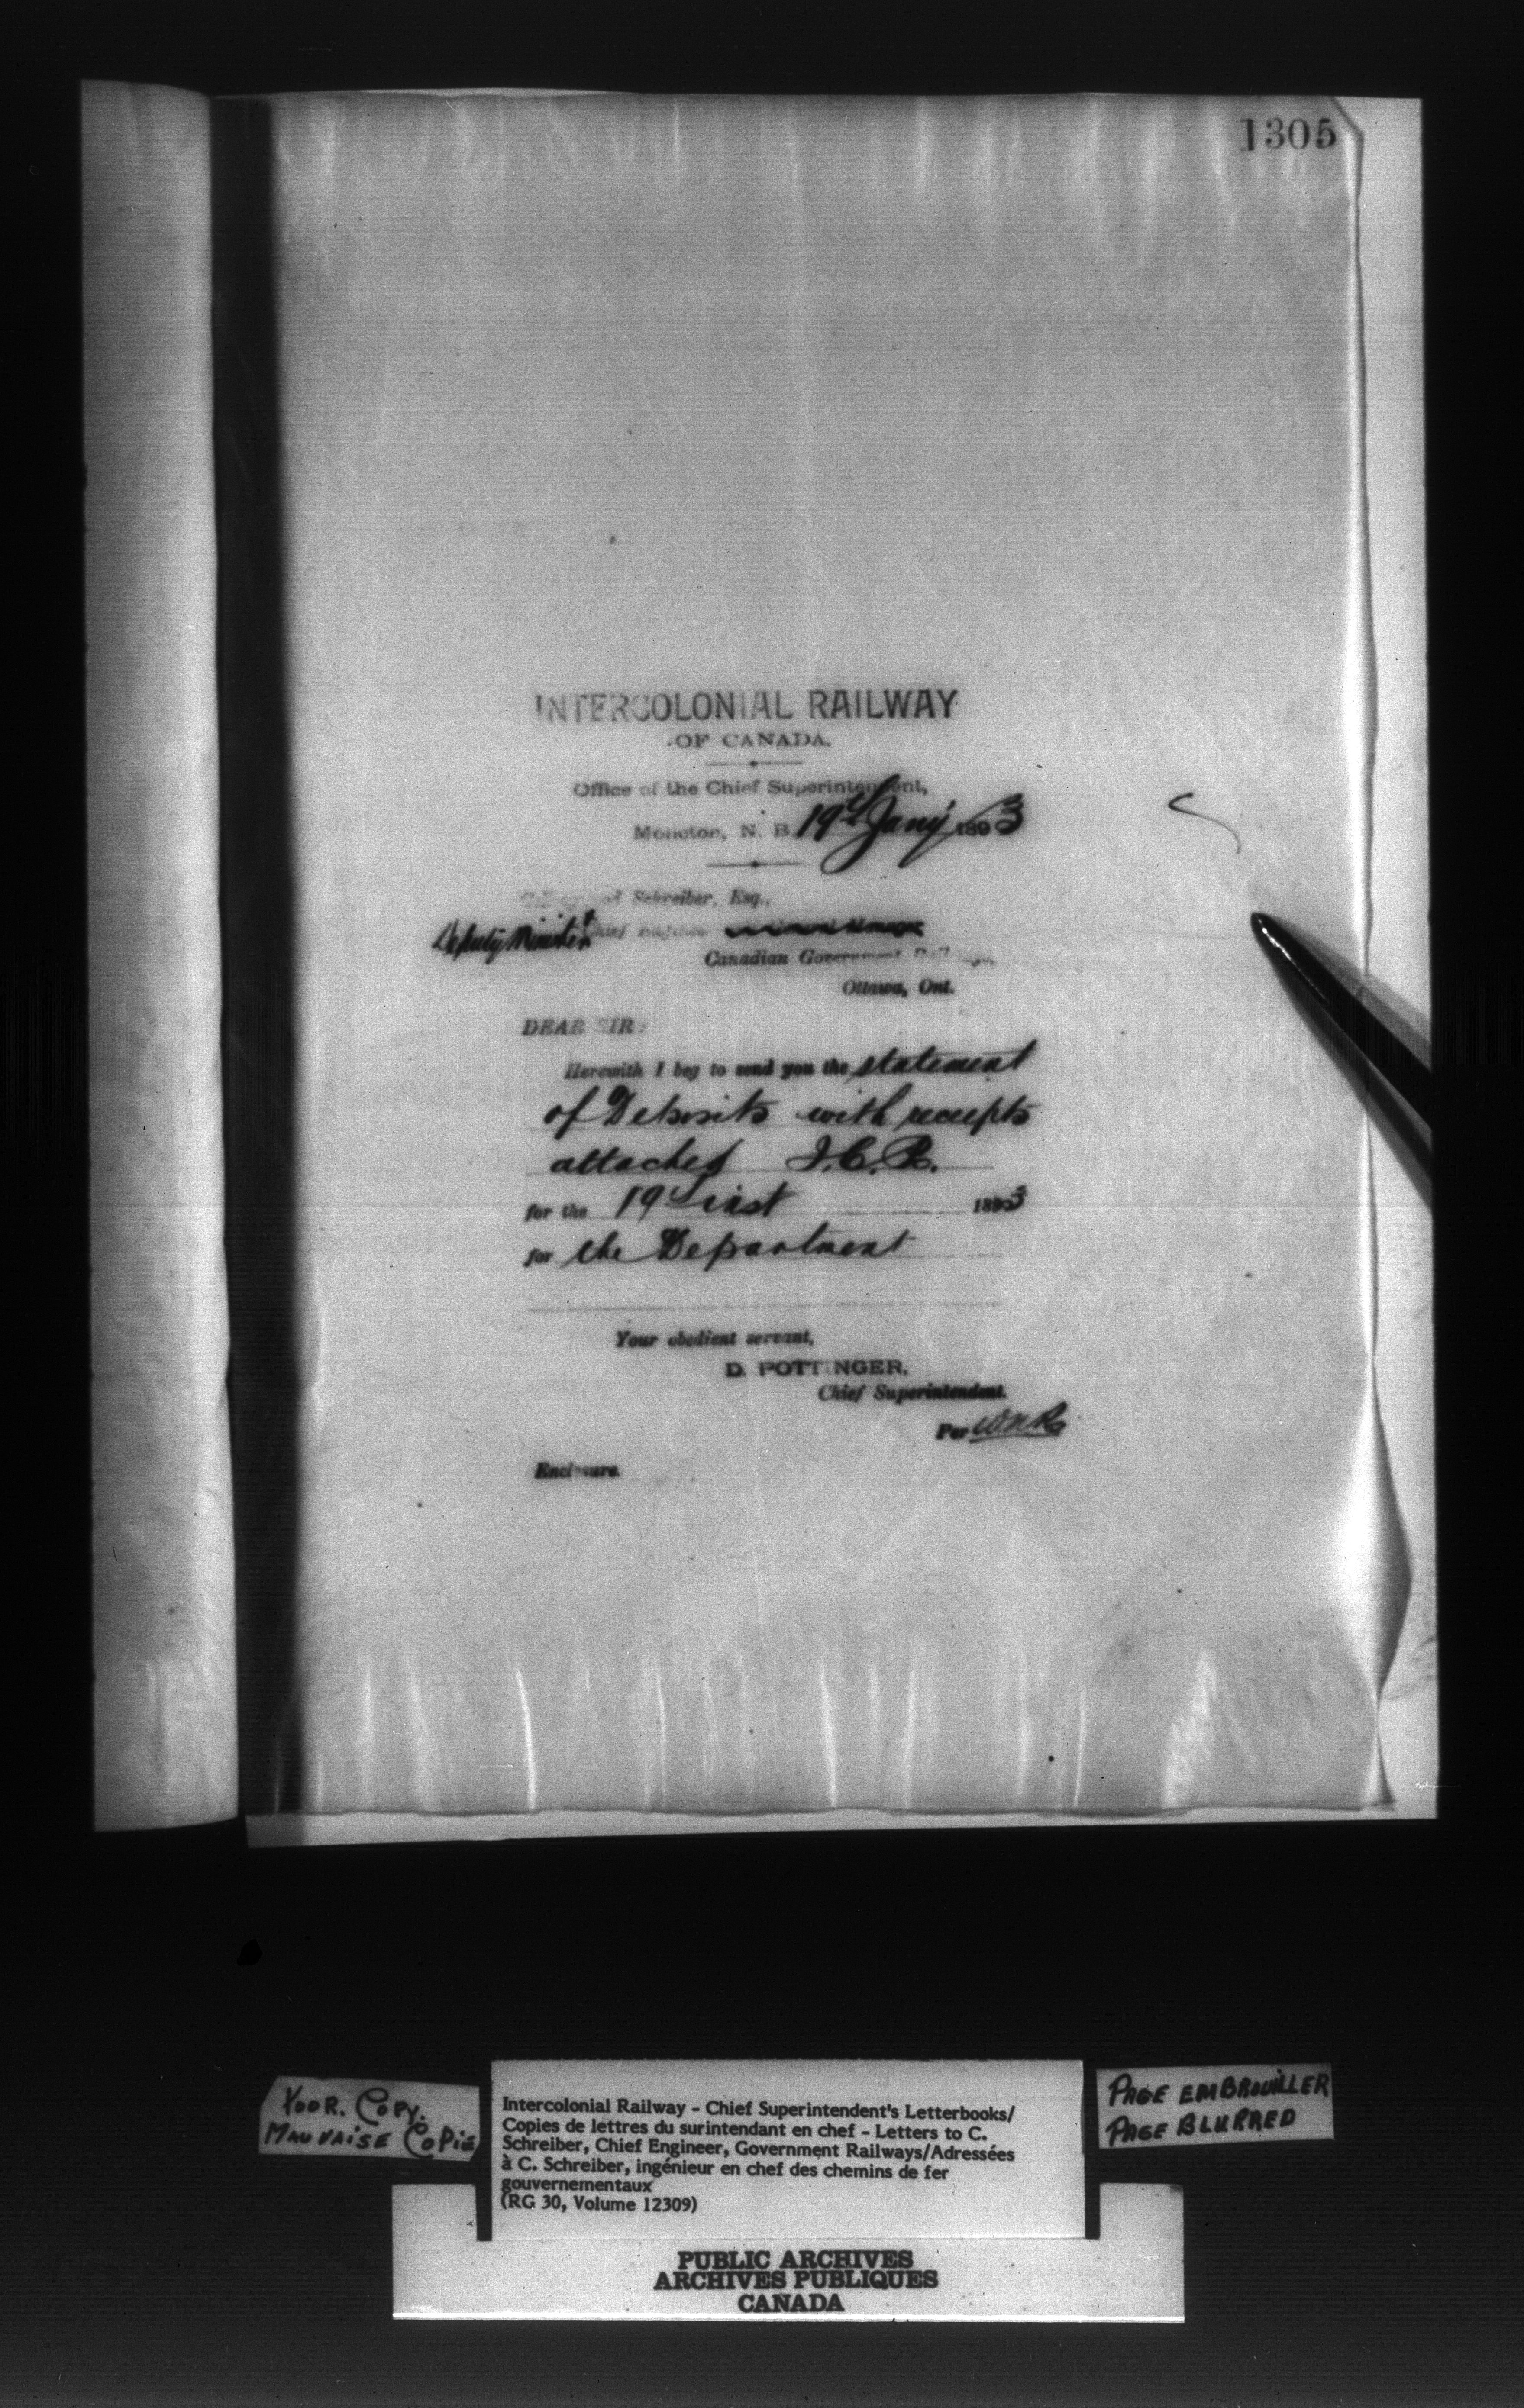 1305
INTERCOLONIAL RAILWAY
OF CANADA.
Office of the Chief Superintendent,
Moncton, N. B. 19th Jany 1893
Schreiber, Esq.,
Deputy Minister & Chief Engineer
Canadian Government
Ottawa, Ont.
DEAR SIR:
Herewith I beg to send you the statement
of Deposits with receipts
attached I.C.R.
for the 19th inst 1893
for the Department
Your obedient servant,
D. POTTINGER,
Chief Superintendent.
Per
Enclosure.
POOR. COPY.
MAUVAISE COPIE
Intercolonial Railway - Chief Superintendent's Letterbooks/
Copies de lettres du surintendant en chef - Letters to C.
Schreiber, Chief Engineer, Government Railways/Adressées
à C. Schreiber, ingénieur en chef des chemins de fer
gouvernementaux
(RG 30, Volume 12309)
PAGE EMBROUILLER
PAGE BLURRED
PUBLIC ARCHIVES
ARCHIVES PUBLIQUES
CANADA